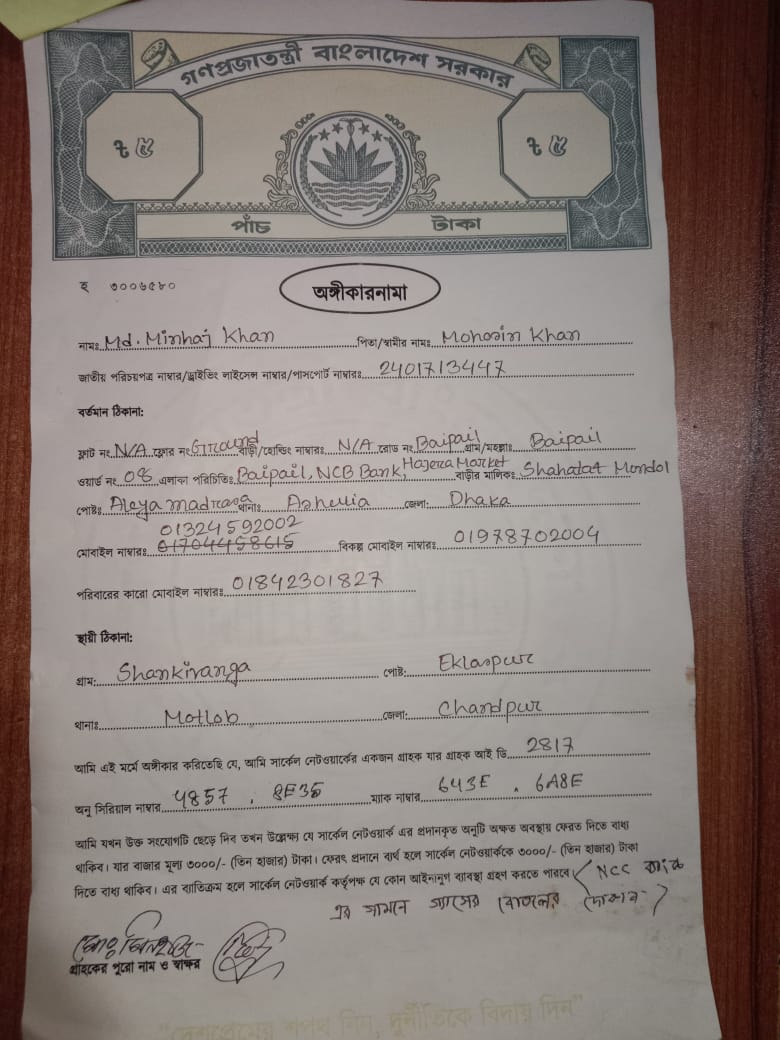 গণপ্রজাতন্ত্রী বাংলাদেশ সরকার
৳ ৫ ৳ ৫
পাঁচ টাকা
হ ৩০০৬৫৮০
অঙ্গীকারনামা
নামঃ Md. Minhaj Khan পিতা/স্বামীর নামঃ Mohosin Khan
জাতীয় পরিচয়পত্র নাম্বার/ড্রাইভিং লাইসেন্স নাম্বার/পাসপোর্ট নাম্বারঃ 2401713447
বর্তমান ঠিকানা:
ফ্লাট নং N/A ফ্লোর নং Ground বাড়ী/হোল্ডিং নাম্বারঃ N/A রোড নং Baipail গ্রাম/মহল্লাঃ Baipail
ওয়ার্ড নং 08 এলাকা পরিচিতিঃ Baipail, NCB Bank, Hajera Market বাড়ীর মালিকঃ Shahadat Mondol
পোষ্টঃ Aleya madrasa থানাঃ Ashulia জেলা: Dhaka
01324592002
মোবাইল নাম্বারঃ 01704458615 বিকল্প মোবাইল নাম্বারঃ 01978702004
পরিবারের কারো মোবাইল নাম্বারঃ 01842301827
স্থায়ী ঠিকানা:
গ্রাম: Shankivanga পোষ্ট: Eklaspur
থানাঃ Motlob জেলা: Chandpur
আমি এই মর্মে অঙ্গীকার করিতেছি যে, আমি সার্কেল নেটওয়ার্কের একজন গ্রাহক যার গ্রাহক আই ডি 2817
অনু সিরিয়াল নাম্বার 4857 . 8E35 ম্যাক নাম্বার 643E . 6A8E
আমি যখন উক্ত সংযোগটি ছেড়ে দিব তখন উল্লেক্ষ্য যে সার্কেল নেটওয়ার্ক এর প্রদানকৃত অনুটি অক্ষত অবস্থায় ফেরত দিতে বাধ্য
থাকিব। যার বাজার মূল্য ৩০০০/- (তিন হাজার) টাকা। ফেরৎ প্রদানে ব্যর্থ হলে সার্কেল নেটওয়ার্ককে ৩০০০/- (তিন হাজার) টাকা
দিতে বাধ্য থাকিব। এর ব্যতিক্রম হলে সার্কেল নেটওয়ার্ক কর্তৃপক্ষ যে কোন আইনানুগ ব্যবস্থা গ্রহণ করতে পারবে (NCC ব্যাংক
এর সামনে গ্যাসের বোতলের দোকান)
গ্রাহকের পুরো নাম ও স্বাক্ষর
"দেশপ্রেমের শপথ নিন, দুর্নীতিকে বিদায় দিন"